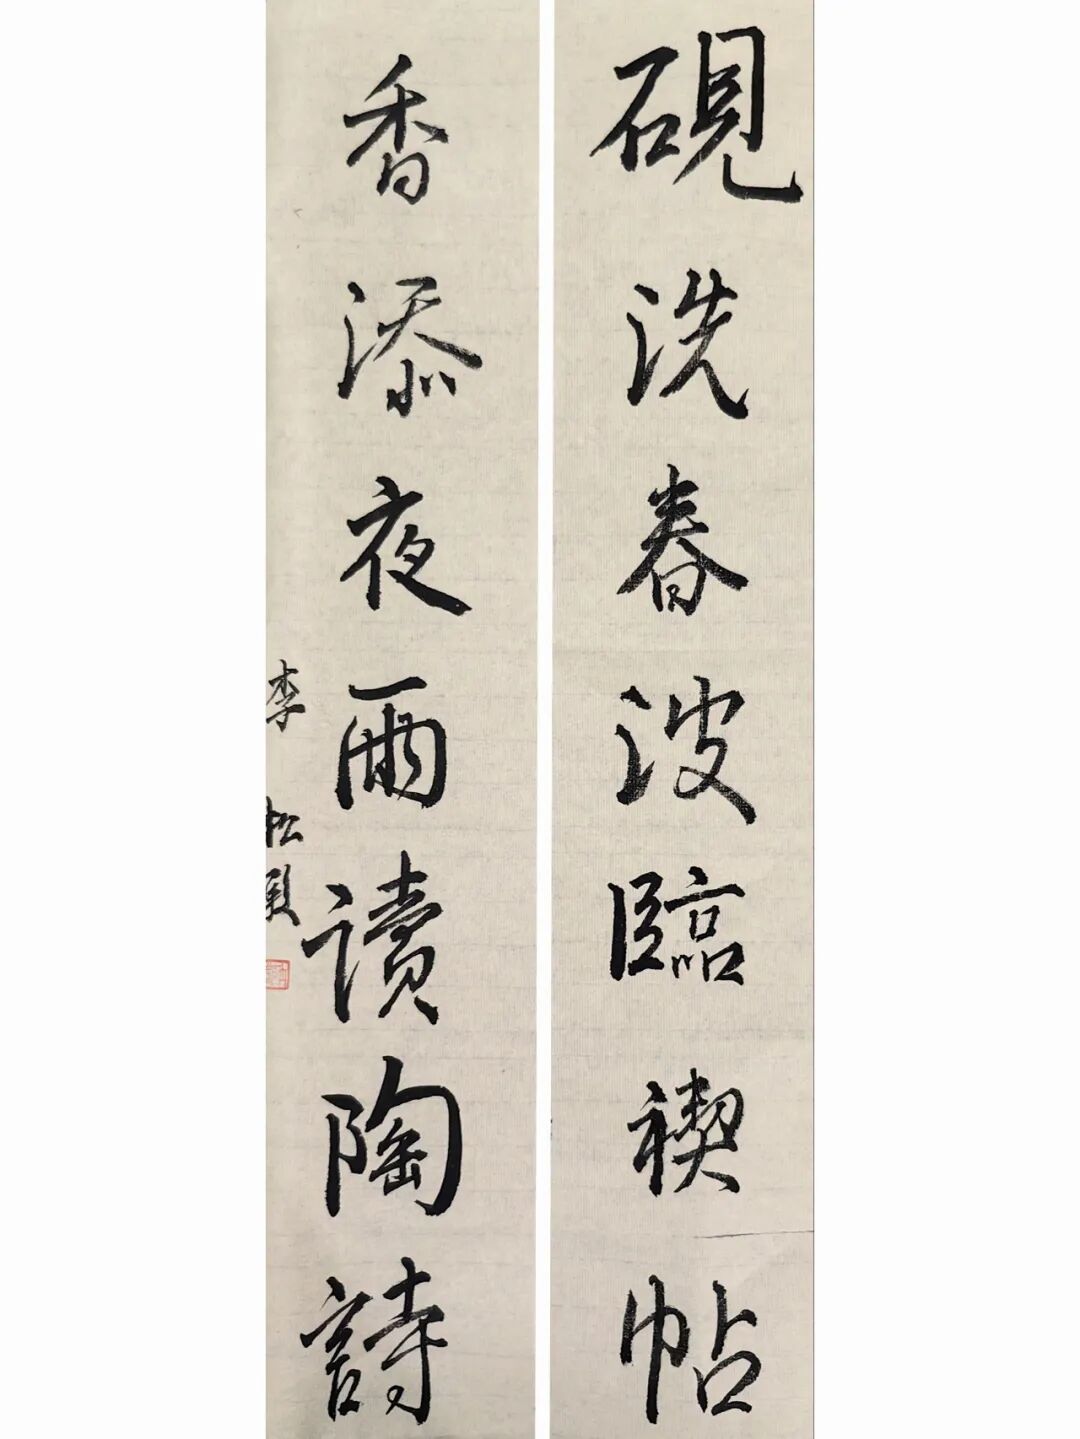 硯洗春波臨禊帖
香添夜雨讀陶詩
李松